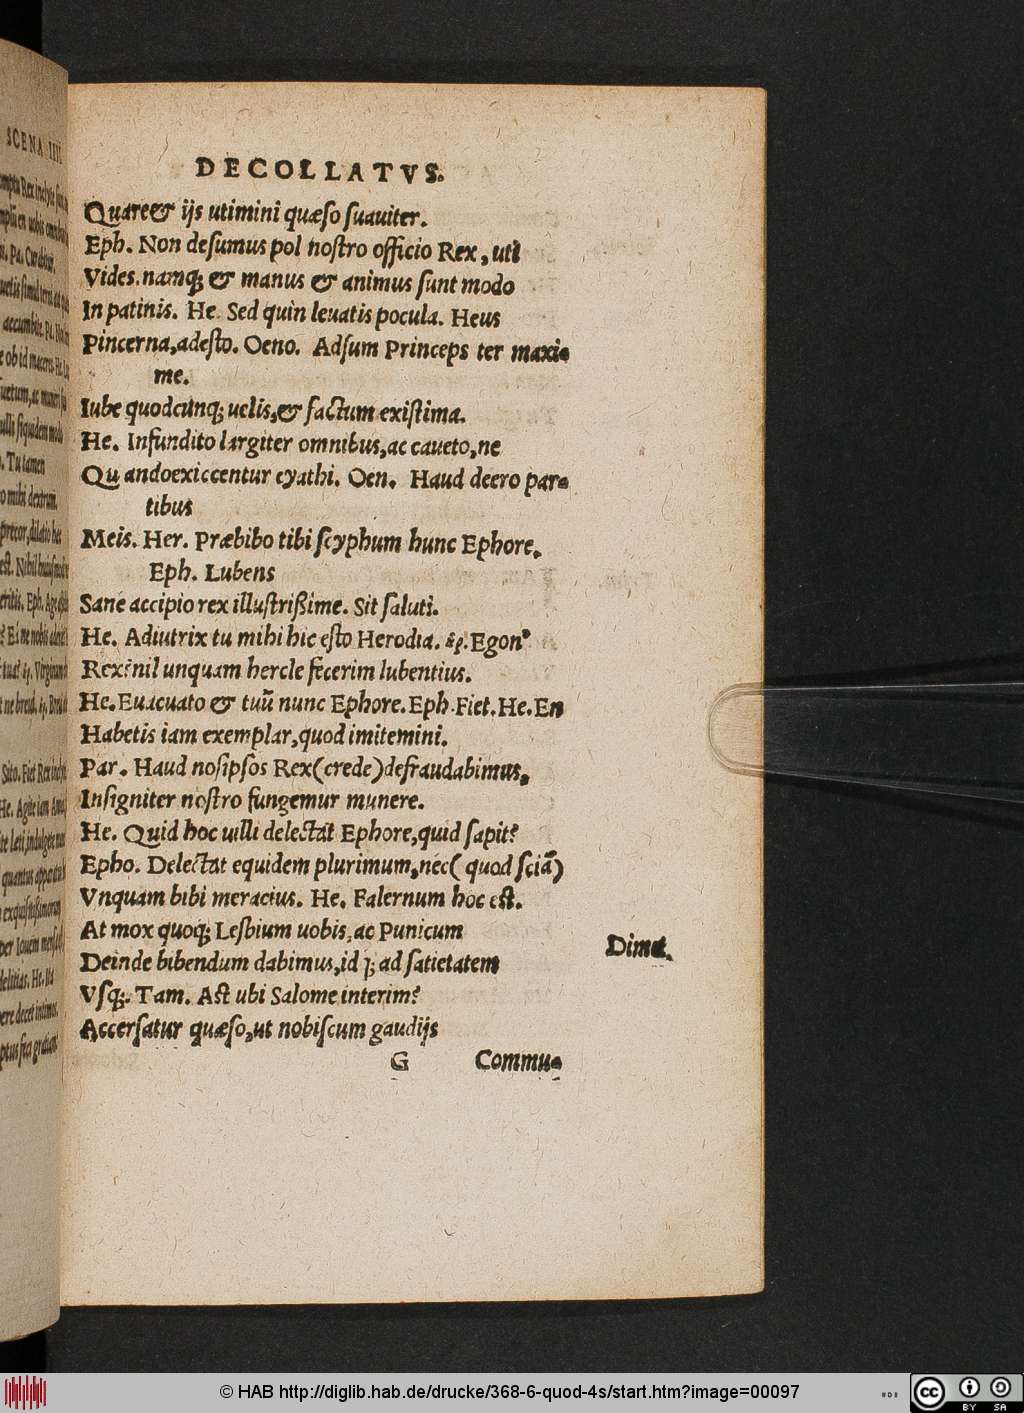 SCENA IIII.
DECOLLATVS.
Quare & ijs utimini quæso suauiter.
Eph. Non desumus pol nostro officio Rex, uti
Vides. namq; & manus & animus sunt modo
In patinis. He. Sed quin leuatis pocula. Heus
Pincerna, adesto. Oeno. Adsum Princeps ter maxi-
me.
Iube quodcunq; uelis, & factum existima.
He. Infundito largiter omnibus, ac caueto, ne
Quandoexiccentur cyathi. Oen. Haud deero par-
tibus
Meis. Her. Præbibo tibi scyphum hunc Ephore.
Eph. Lubens
Sane accipio rex illustrißime. Sit saluti.
He. Adiutrix tu mihi hic esto Herodia. Egon'
Rex? nil unquam hercle fecerim lubentius.
He. Euacuato & tuū nunc Ephore. Eph. Fiet. He. En
Habetis iam exemplar, quod imitemini.
Par. Haud nosipsos Rex (crede) defraudabimus,
Insigniter nostro fungemur munere.
He. Quid hoc uilli delectat Ephore, quid sapit?
Epho. Delectat equidem plurimum, nec ( quod sciā)
Vnquam bibi meracius. He. Falernum hoc est.
At mox quoq; Lesbium uobis, ac Punicum
Dimet.
Deinde bibendum dabimus, id q; ad satietatem
Vsq;. Tam. Ast ubi Salome interim?
Accersatur quæso, ut nobiscum gaudijs
G Commu-
© HAB http://diglib.hab.de/drucke/368-6-quod-4s/start.htm?image=00097
cc BY SA